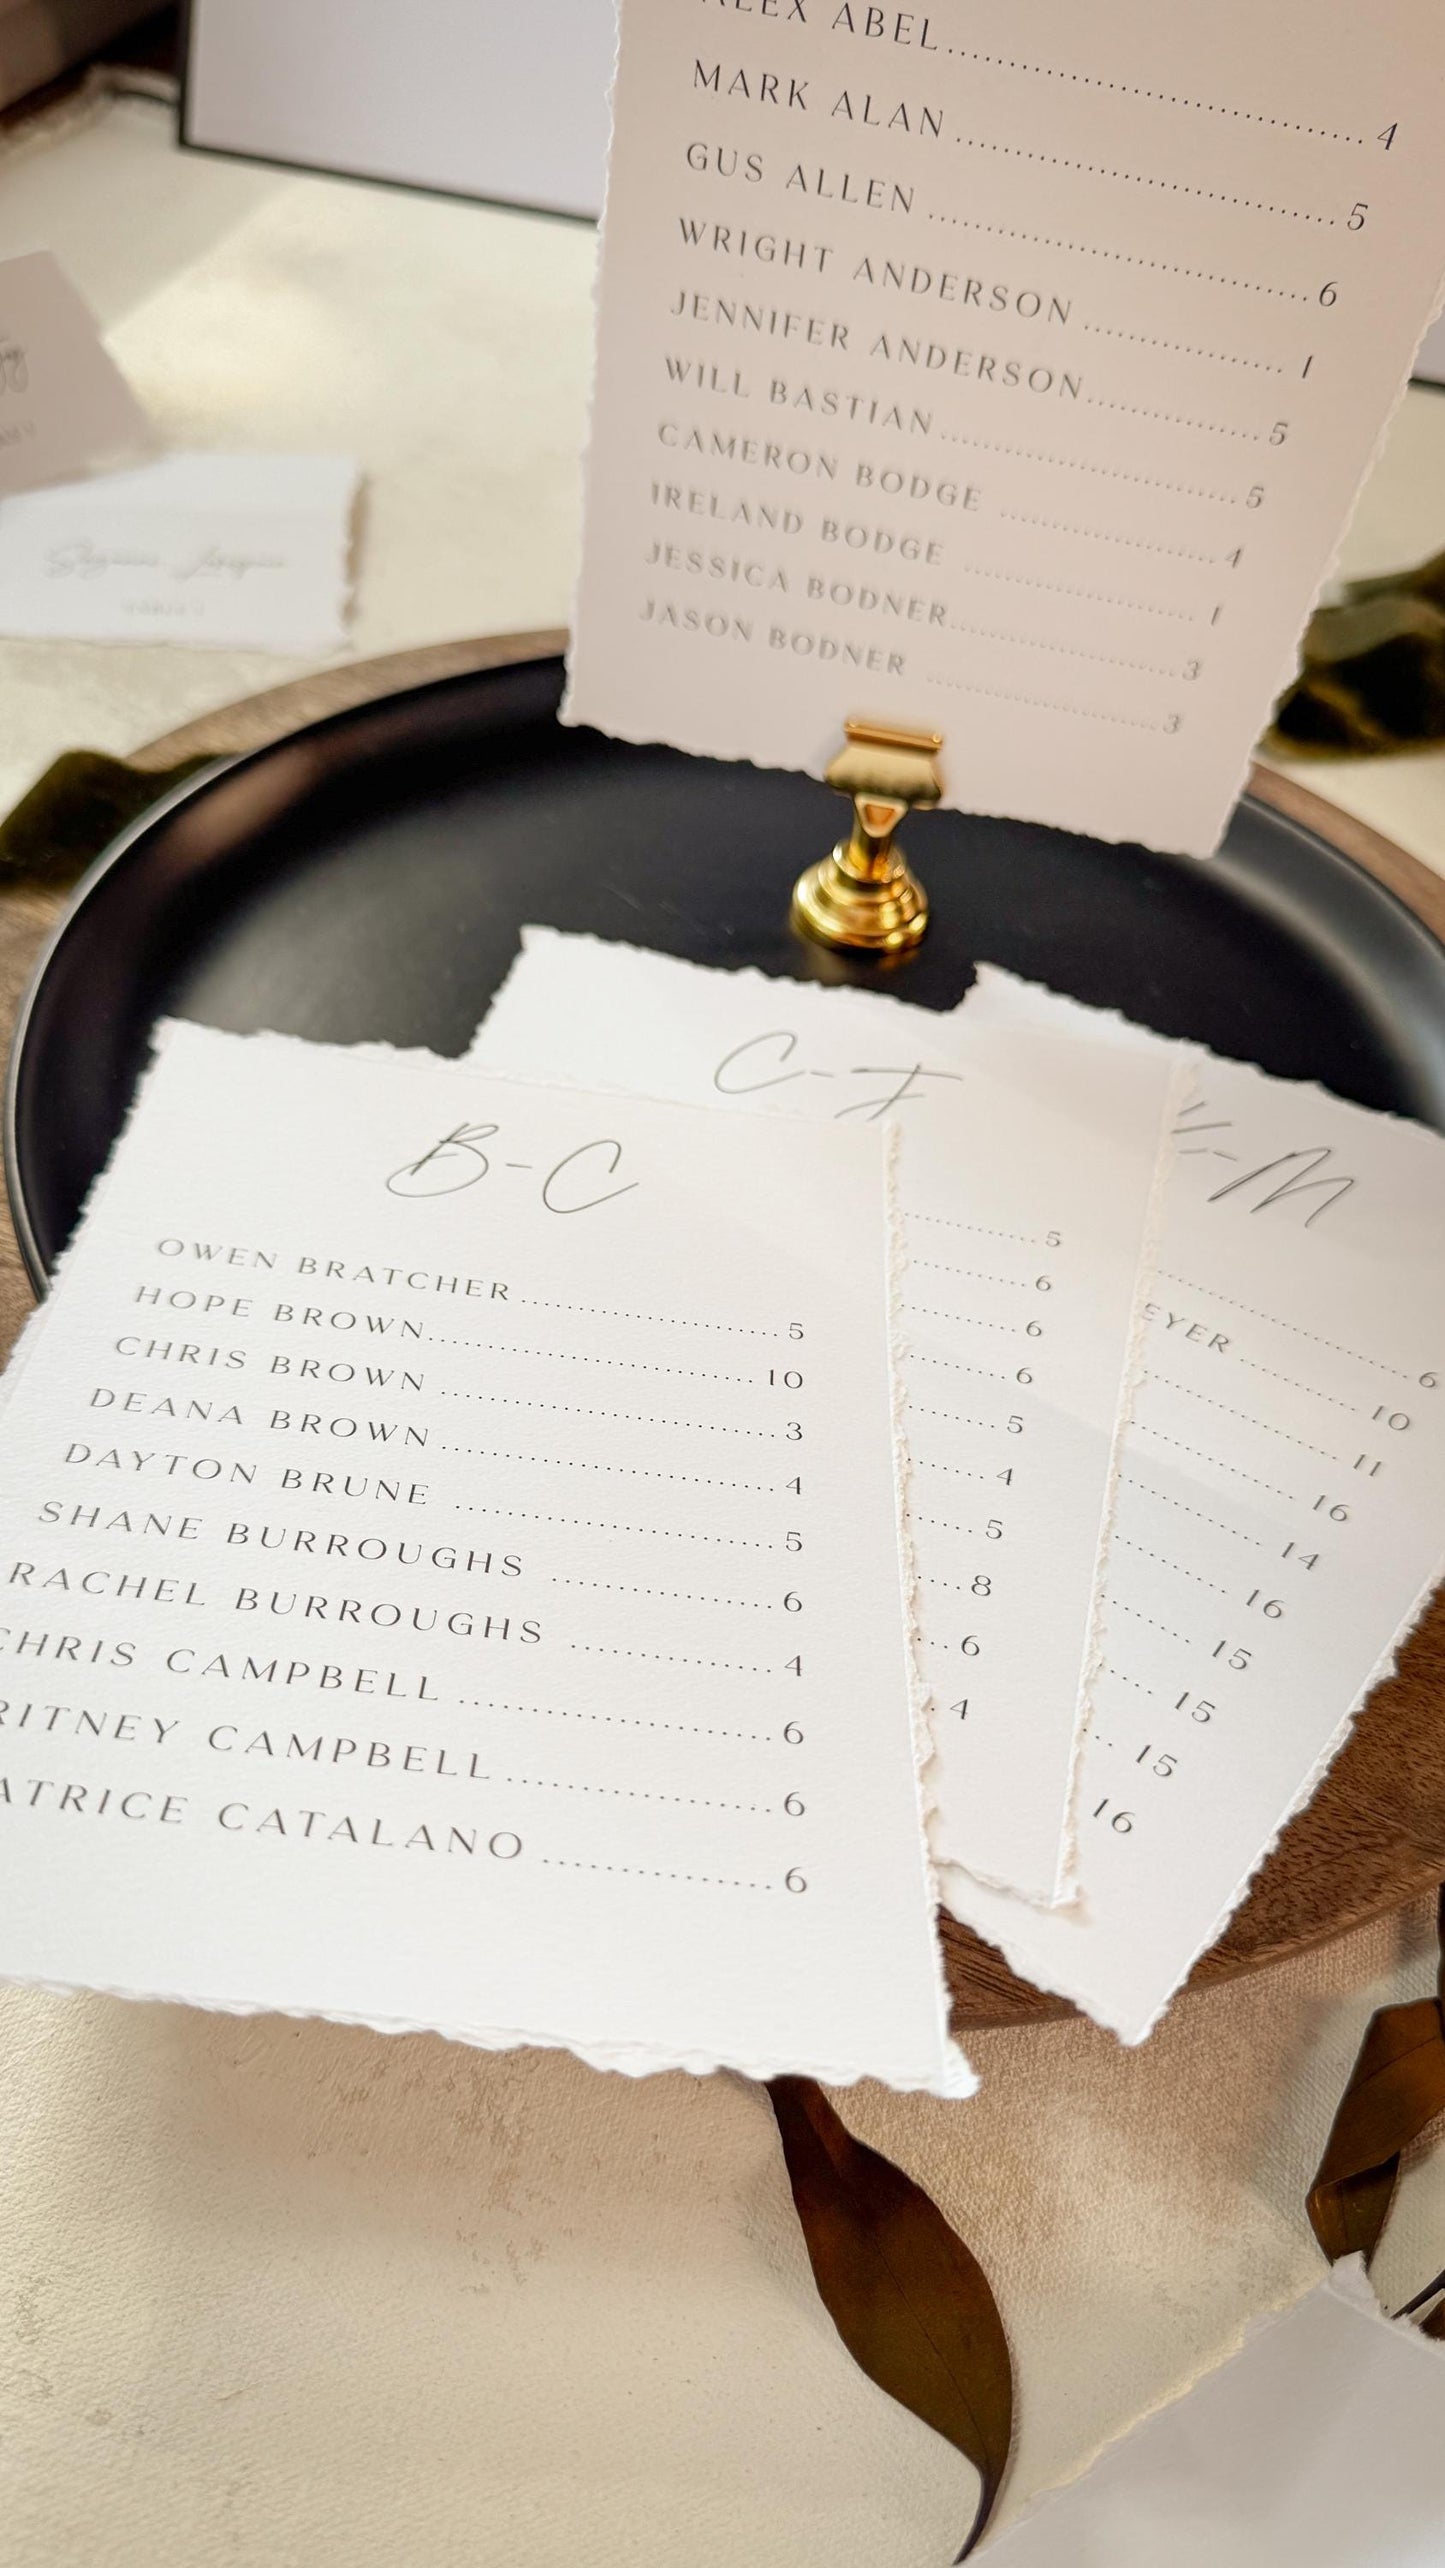 ALEX ABEL 4
MARK ALAN 5
GUS ALLEN 6
WRIGHT ANDERSON 1
JENNIFER ANDERSON 5
WILL BASTIAN 5
CAMERON BODGE 4
IRELAND BODGE 1
JESSICA BODNER 3
JASON BODNER 3
B-C
OWEN BRATCHER 5
HOPE BROWN 10
CHRIS BROWN 3
DEANA BROWN 4
DAYTON BRUNE 5
SHANE BURROUGHS 6
RACHEL BURROUGHS 4
CHRIS CAMPBELL 6
RITNEY CAMPBELL 6
ATRICE CATALANO 6
C-F
5
6
6
6
5
4
5
8
6
4
-M
6
EYER 10
11
16
14
16
15
15
15
16